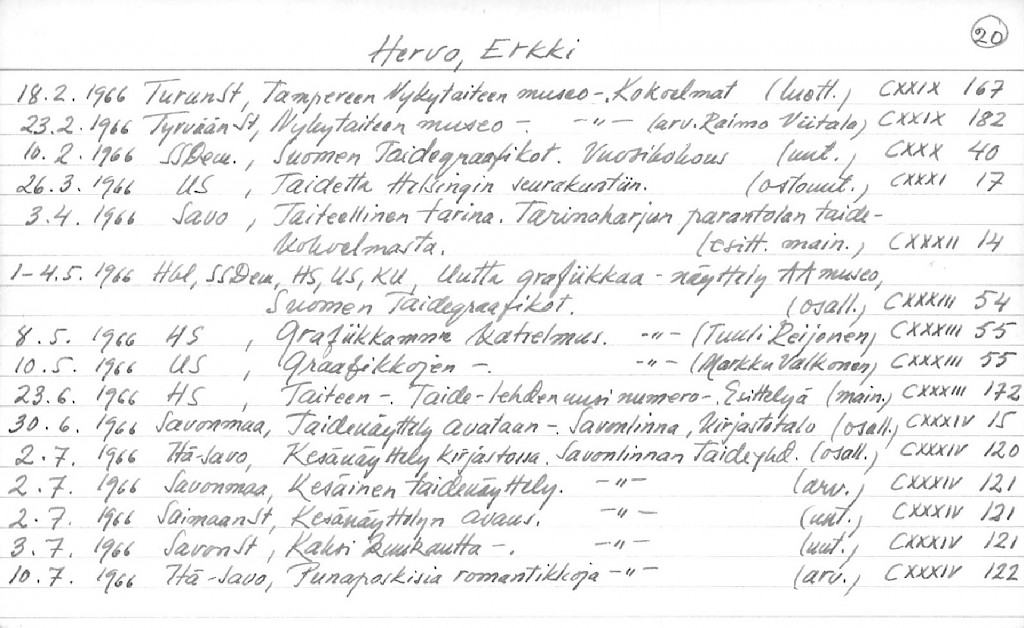 20
Hervo, Erkki
18.2. 1966 TurunSt, Tampereen Nykytaiteen museo-. Kokoelmat (luott.) CXXIX 167
23.2. 1966 TyrväänSt, Nykytaiteen museo -. -"- (arv. Raimo Viitala) CXXIX 182
10.2. 1966 SSDem., Suomen Taidegraafikot. Vuosikokous (uut.) CXXX 40
26.3. 1966 US, Taidetta Helsingin seurakuntiin. (ostouut.) CXXXI 17
3.4. 1966 Savo, Taiteellinen tarina. Tarinaharjun parantolan taide-
kokoelmasta. (esitt. main.) CXXXII 14
1-4.5. 1966 Hbl, SSDem, HS, US, KU, Uutta grafiikkaa - näyttely AA museo,
Suomen Taidegraafikot. (osall.) CXXXIII 54
8.5. 1966 HS, Grafiikkamme katselmus. -"- (Tuuli Reijonen) CXXXIII 55
10.5. 1966 US, Graafikkojen -. -"- (Markku Valkonen) CXXXIII 55
23.6. 1966 HS, Taiteen -. Taide-lehden uusi numero-. Esittelyä (main.) CXXXIII 172
30.6. 1966 Savonmaa, Taidenäyttely avataan -. Savonlinna, kirjastotalo (osall.) CXXXIV 15
2.7. 1966 Itä-Savo, Kesänäyttely kirjastossa. Savonlinnan Taideyhd. (osall.) CXXXIV 120
2.7. 1966 Savonmaa, Kesäinen taidenäyttely. -"- (arv.) CXXXIV 121
2.7. 1966 SaimaanSt, Kesänäyttelyn avaus. -"- (uut.) CXXXIV 121
3.7. 1966 SavonSt, Kaksi kuukautta -. -"- (uut.) CXXXIV 121
10.7. 1966 Itä-Savo, Punaposkisia romantikkoja -"- (arv.) CXXXIV 122